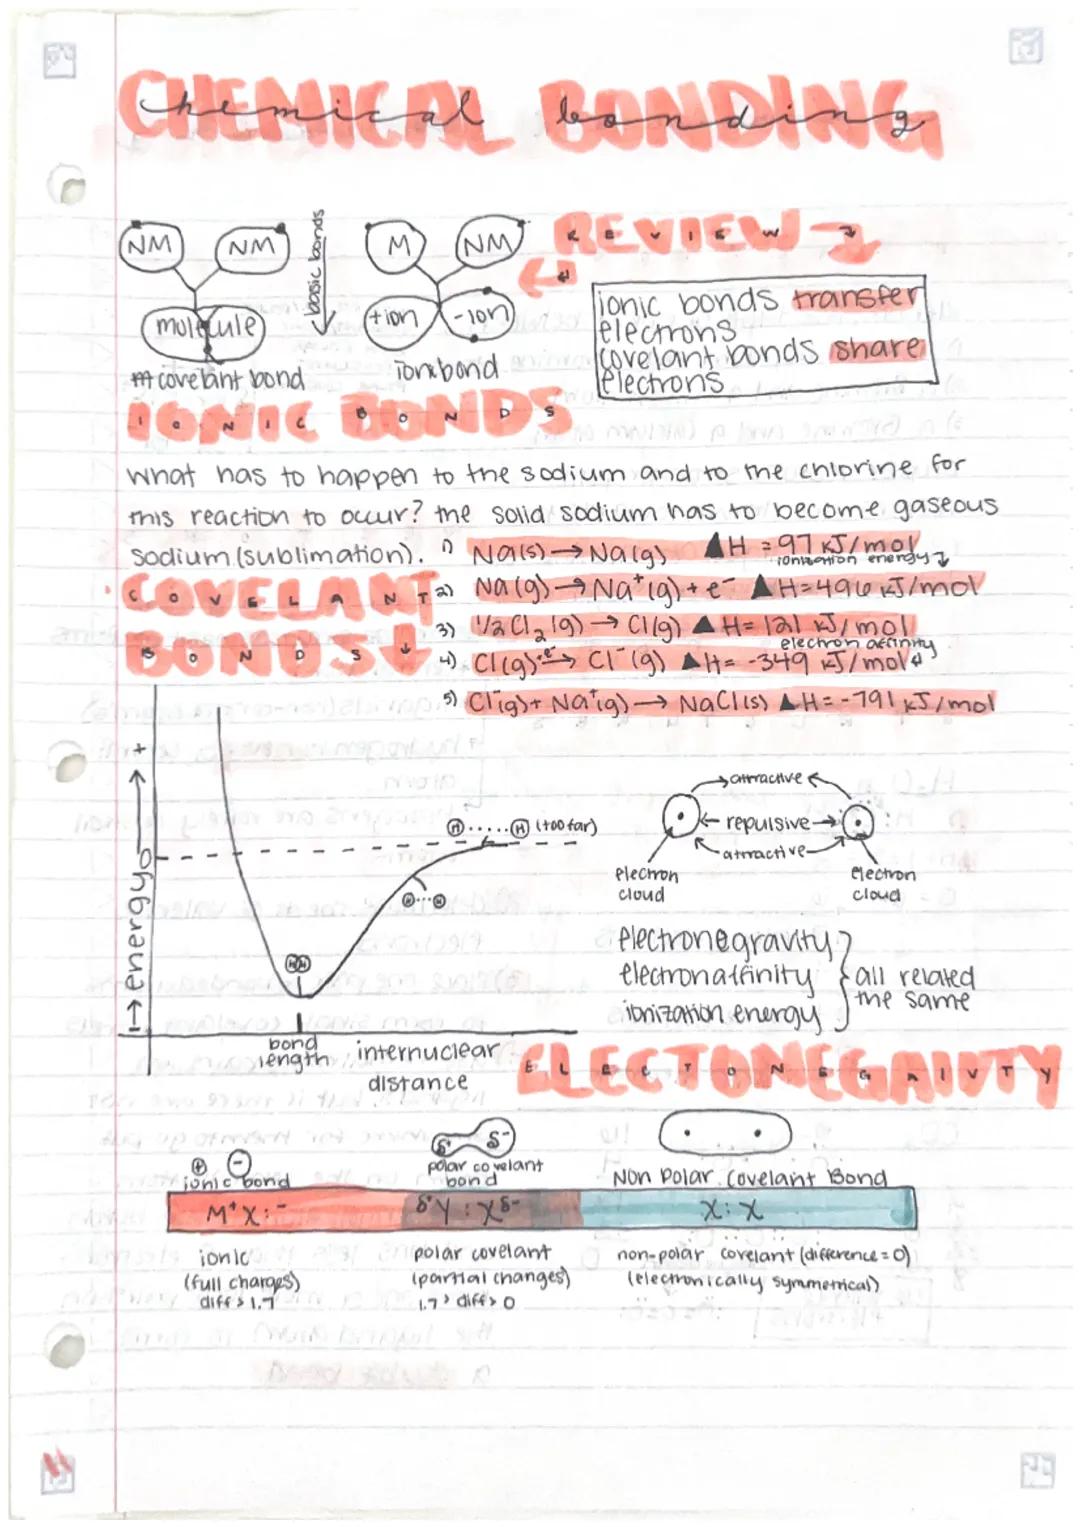 CHEMICAL BONDING
chemical bonding
NM NM
molecule
covelant bond
basic bonds
M NM
+ion -ion
ionic bond
REVIEW
REVIEW
ionic bonds transfer
electrons
covelant bonds share
electrons
IONIC BONDS
IONIC BONDS
what has to happen to the sodium and to the chlorine for
this reaction to occur? the solid sodium has to become gaseous
sodium (sublimation).
1) Na(s) → Na(g) ▲H = 97 kJ/mol
ionization energy
2) Na(g) → Na⁺(g) + e⁻ ▲H=496 kJ/mol
3) 1/2 Cl₂(g) → Cl(g) ▲H= 121 kJ/mol
electron affinity
4) Cl(g) +e⁻ → Cl⁻(g) ▲H= -349 kJ/mol
5) Cl⁻(g) + Na⁺(g) → NaCl(s) ▲H= -791 kJ/mol
COVELANT
COVELANT
BONDS
BONDS
→ energy → +
0
H.....H (too far)
H...H
HH
bond
length
internuclear
distance
attractive
repulsive
attractive
electron
cloud
electron
cloud
electronegravity
electronaffinity
ionization energy
all related
the same
ELECTONEGAIVTY
ELECTONEGAIVTY
+ -
ionic bond
δ⁺ δ⁻
polar covelant
bond
Non Polar Covelant Bond
M⁺X:⁻
δ⁺Y : Xδ⁻
X : X
ionic
(full charges)
diff > 1.7
polar covelant
(partial changes)
1.7 > diff > 0
non-polar covelant (difference = 0)
(electronically symmetrical)